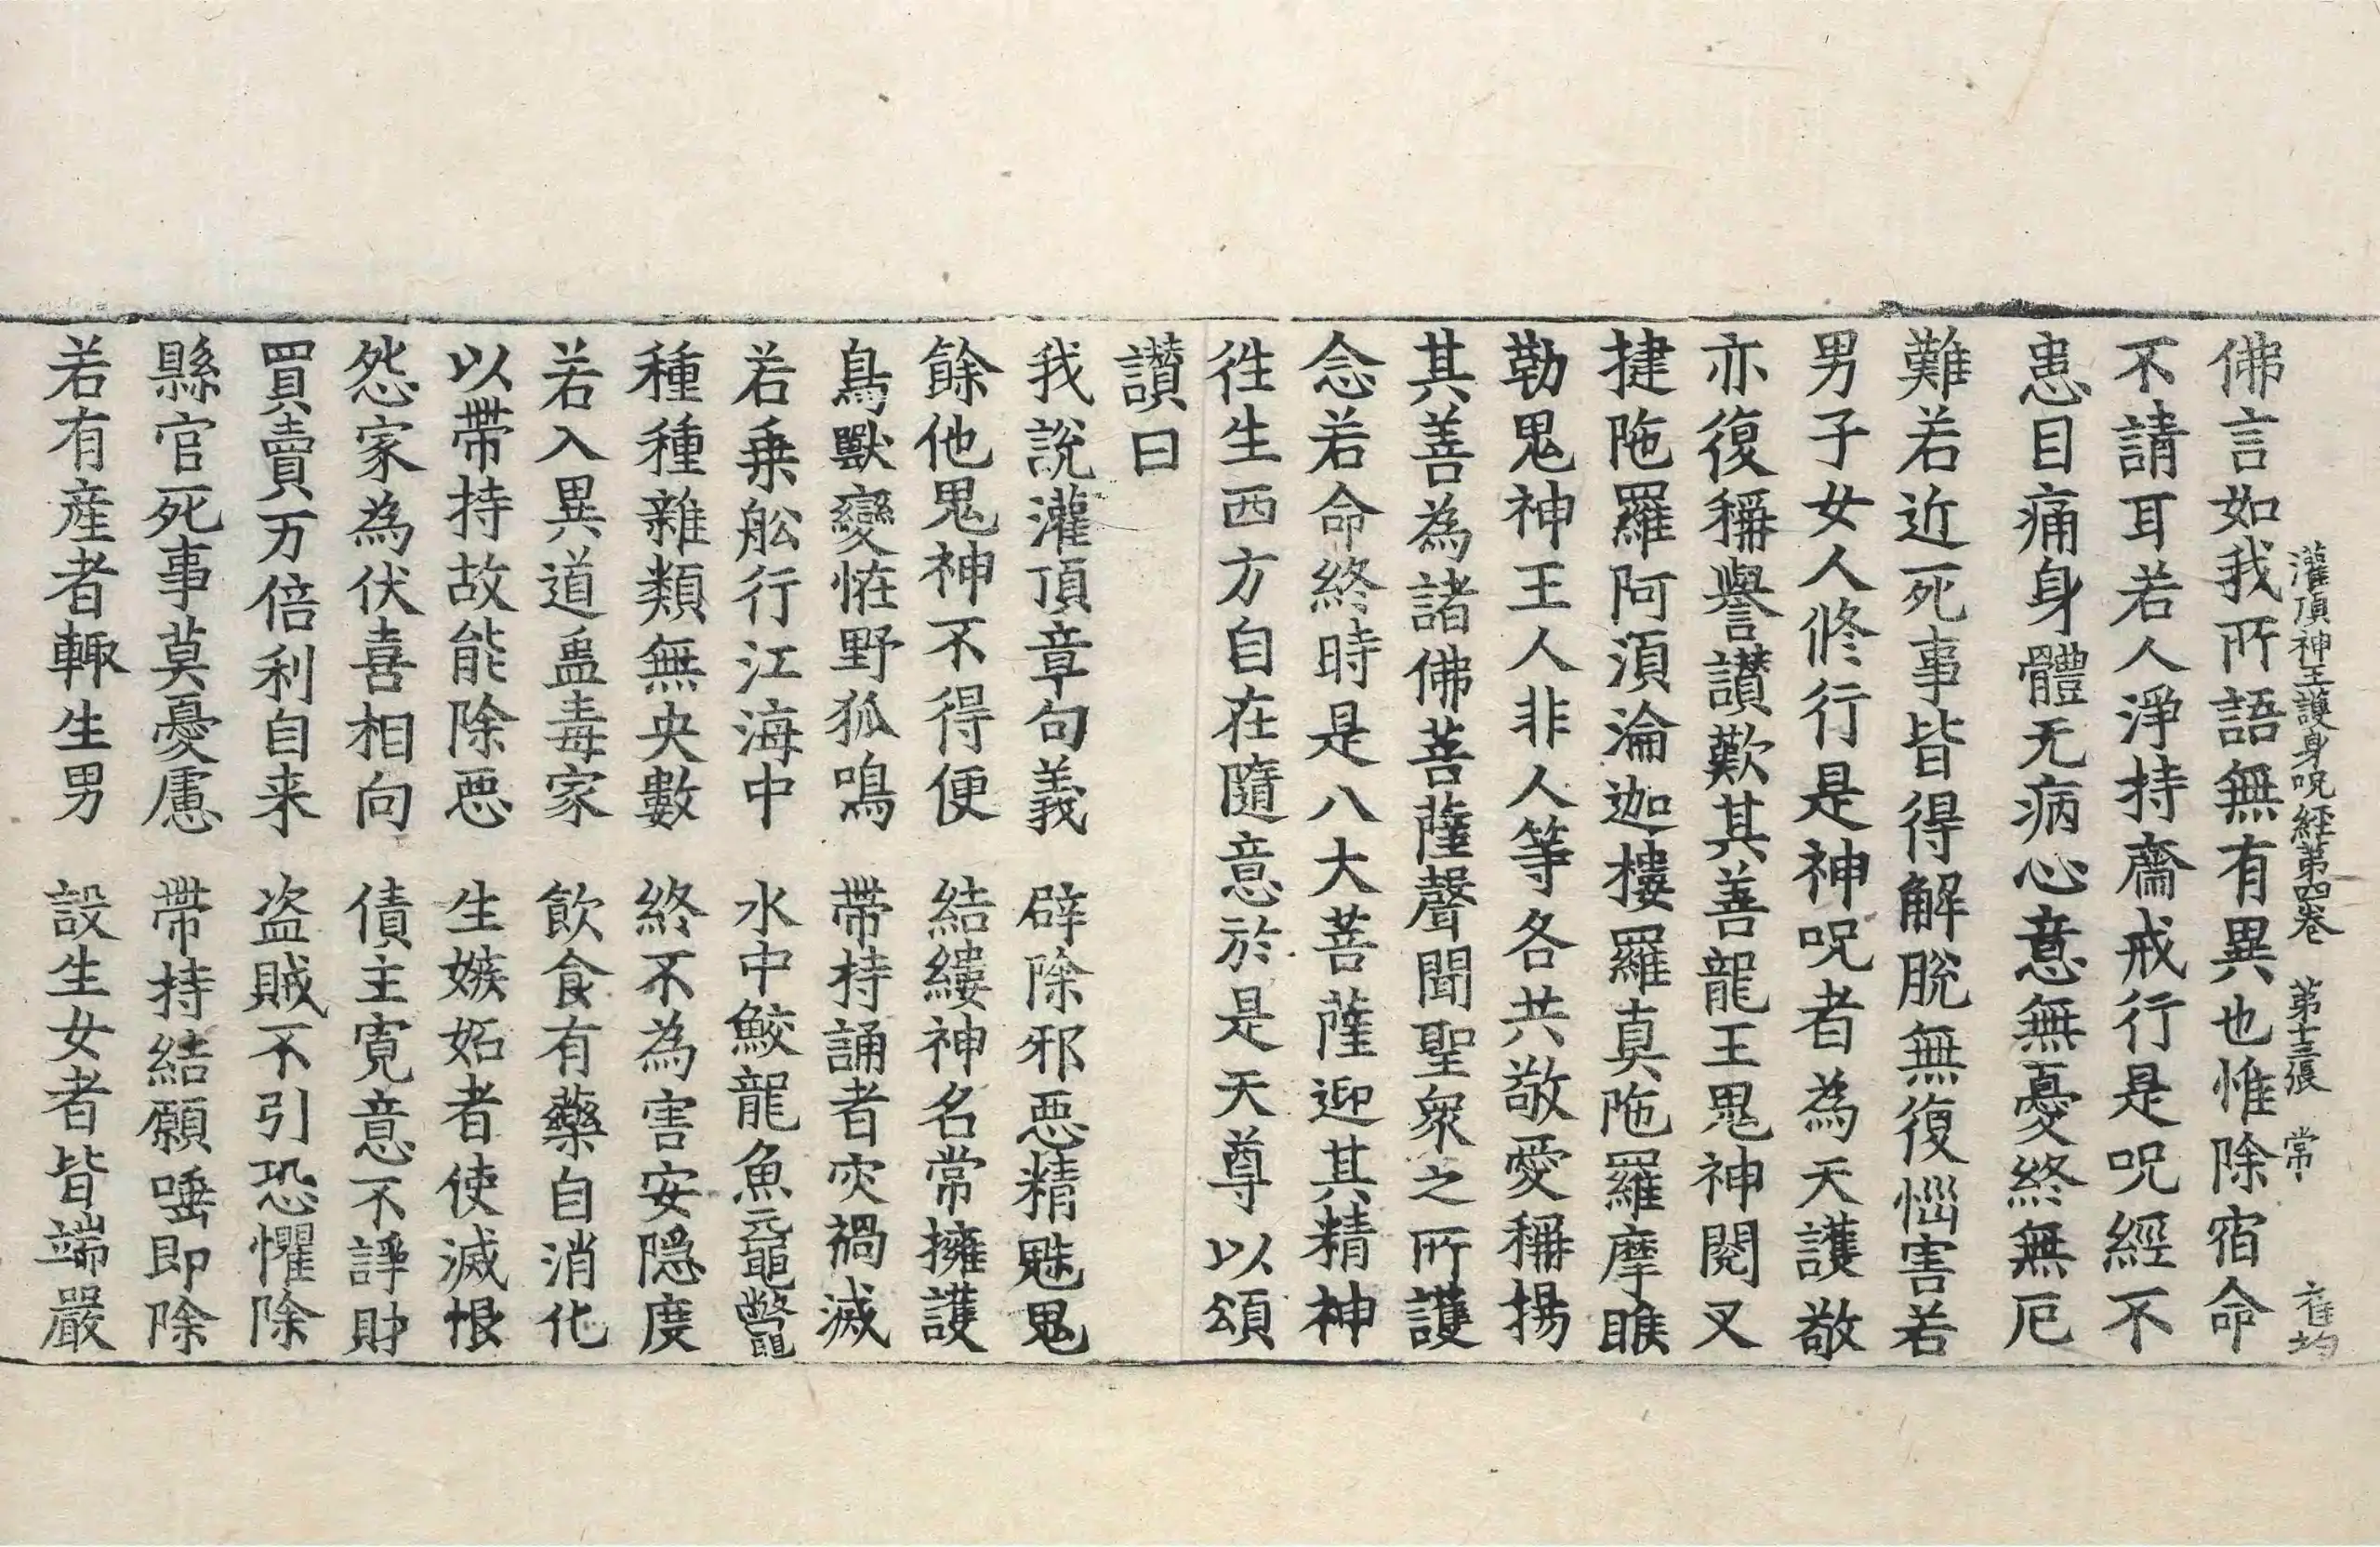 灌頂神王護身呪經第四卷 第十三張 常 崔均
佛言如我所語無有異也惟除宿命
不請耳若人淨持齋戒行是呪經不
患目痛身體无病心意無憂終無厄
難若近死事皆得解脫無復惱害若
男子女人修行是神呪者為天護敬
亦復稱譽讃歎其善龍王鬼神閱叉
揵陁羅阿湏淪迦樓羅真陁羅摩睺
勒鬼神王人非人等各共敬愛稱揚
其善為諸佛菩薩聲聞聖衆之所護
念若命終時是八大菩薩迎其精神
徃生西方自在隨意於是天尊以頌
讃曰
我說灌頂章句義 辟除邪惡精魅鬼
餘他鬼神不得便 結縷神名常擁護
鳥獸變恠野狐鳴 帶持誦者灾禍滅
若乗舩行江海中 水中鮫龍魚黿鼈
種種雜類無央數 終不為害安隱度
若入異道蠱毒家 飲食有藥自消化
以帶持故能除惡 生嫉妬者使滅恨
怨家為伏喜相向 債主寬意不諍財
買賣万倍利自来 盗賊不引恐懼除
縣官死事莫憂慮 帶持結願唾即除
若有産者輙生男 設生女者皆端嚴